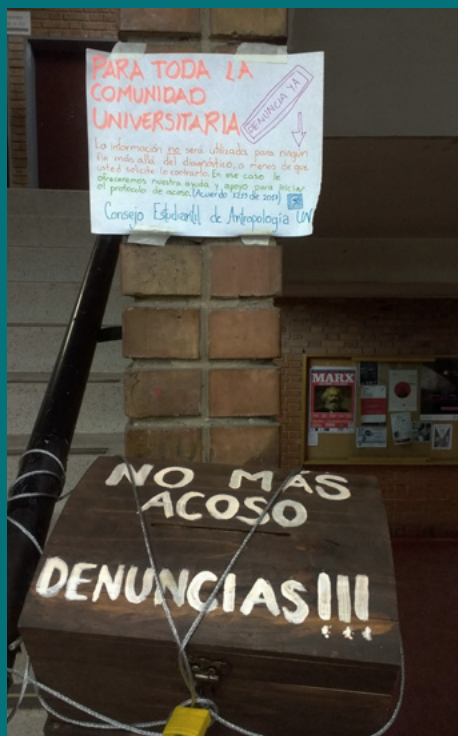 PARA TODA LA
COMUNIDAD
UNIVERSITARIA
DENUNCIA YA!
La información no será utilizada para ningún
fin más allá del diagnóstico, a menos de que
usted solicite lo contrario. En ese caso le
ofreceremos nuestra ayuda y apoyo para iniciar
el protocolo de acoso. (Acuerdo 1215 de 2017)
Consejo Estudiantil de Antropología UN
MARX
NO MÁS
ACOSO
DENUNCIAS!!!